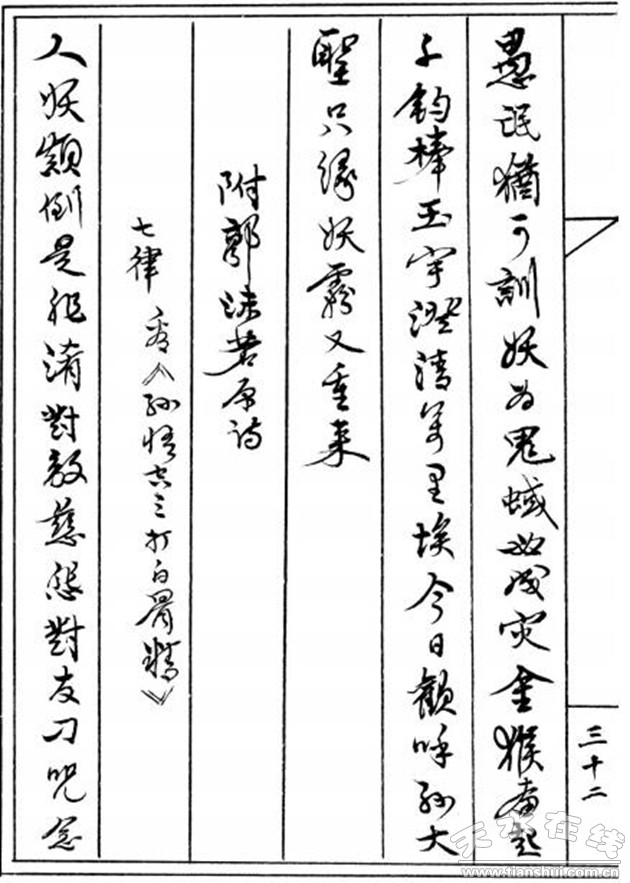 三十二
愚氓猶可訓妖为鬼蜮必成灾金猴奮起
千鈞棒玉宇澄清萬里埃今日歡呼孙大
聖只緣妖霧又重来
附郭沫若原诗
七律 看《孙悟空三打白骨精》
人妖顛倒是非淆對敵慈悲對友刁咒念
天水在线
www.tianshui.com.cn